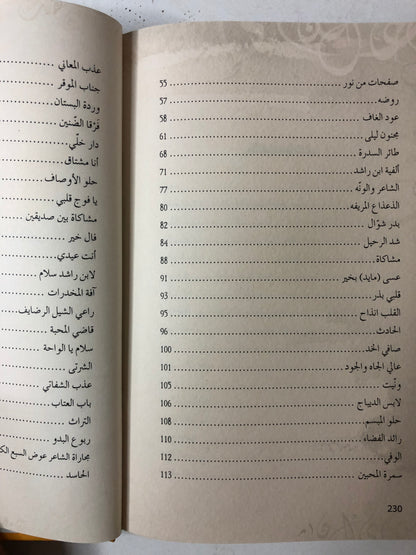 صفحات من نور 55
روضه 57
عود الغاف 58
مجنون ليلى 61
طائر السدرة 68
ألفية ابن راشد 71
الشاعر والونّه 77
الذعذاع المريفه 80
بدر شوّال 82
شد الرحيل 84
مشاكاة 88
عسى (مايد) بخير 91
قلبي بذر 93
القلب انذاح 95
الحادث 96
صافي الخد 100
عالي الجاه والجود 101
ونّيت 105
لابس الديباج 106
حلو المبسم 108
رائد الفضاء 110
الوفي 112
سمرة المحبين 113
230
عذب المعاني
جناب الموقر
وردة البستان
فَرْقا الضّنين
دار خلّي
أنا مشتاق
حلو الأوصاف
يا فوج قلبي
مشاكاة بين صديقين
قال خير
أنت عيدي
لابن راشد سلام
آفة المخدرات
راعي الشيل الرضايف
قاضي المحبة
سلام يا الواحة
الشرتى
عذب الشفاتي
باب العتاب
التراث
ربوع البدو
مجاراة الشاعر عوض السبع
الحاسد